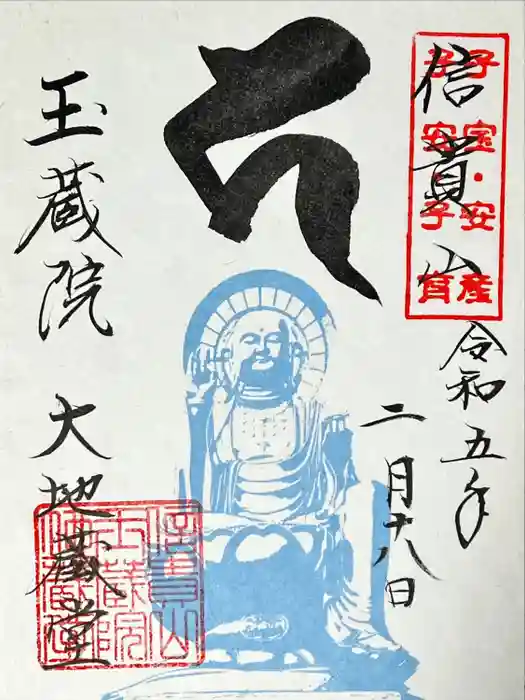 子宝・安産
子安・子育
信貴山
令和五年
二月十八日
玉蔵院 大地蔵堂